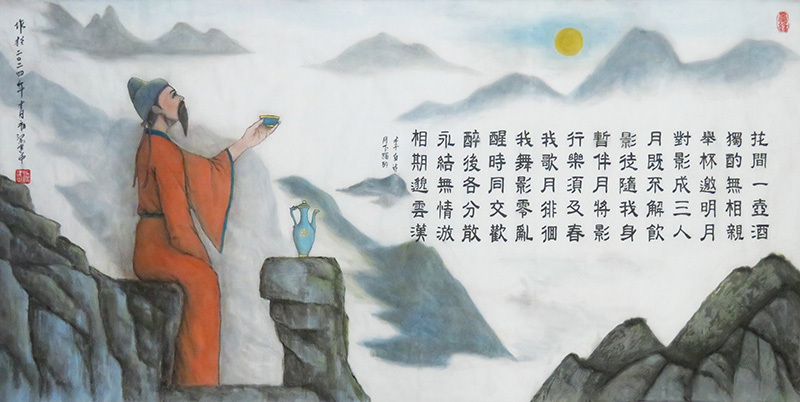 花間一壺酒
獨酌無相親
舉杯邀明月
對影成三人
月既不解飲
影徒隨我身
暫伴月將影
行樂須及春
我歌月徘徊
我舞影零亂
醒時同交歡
醉後各分散
永結無情游
相期邈雲漢
李白诗
月下獨酌
作於二〇二四年十月